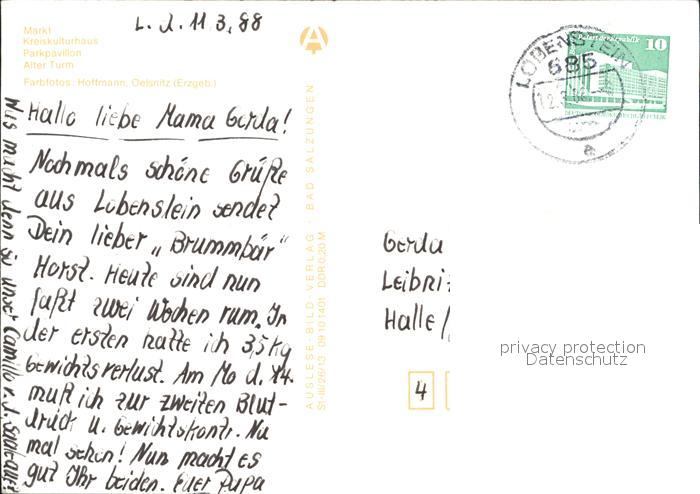 L. d. 11.3.88
Markt
Kreiskulturhaus
Parkpavillon
Alter Turm
Farbfotos: Hoffmann, Oelsnitz (Erzgeb.)
Hallo liebe Mama Gerda!
Nochmals schöne Grüße
aus Lobenstein sendet
Dein lieber „Brummbär"
Horst. Heute sind nun
faßt zwei Wochen rum. In
der ersten hatte ich 3,5 kg
Gewichtsverlust. Am Mo d. 14.
muß ich zur zweiten Blut-
druck u. Gewichtskontr. Na
mal sehen! Nun macht es
gut Ihr beiden. Euer Pupa
Was macht denn so unser Camillo v. d.
AUSLESE-BILD-VERLAG · BAD SALZUNGEN
St-III/26/13 09 10 1401 DDR 0,20 M
LOBENSTEIN
685
12.3.88
a
Palast der Republik
10
Gerda
Leibni
Halle /
4
privacy protection
Datenschutz